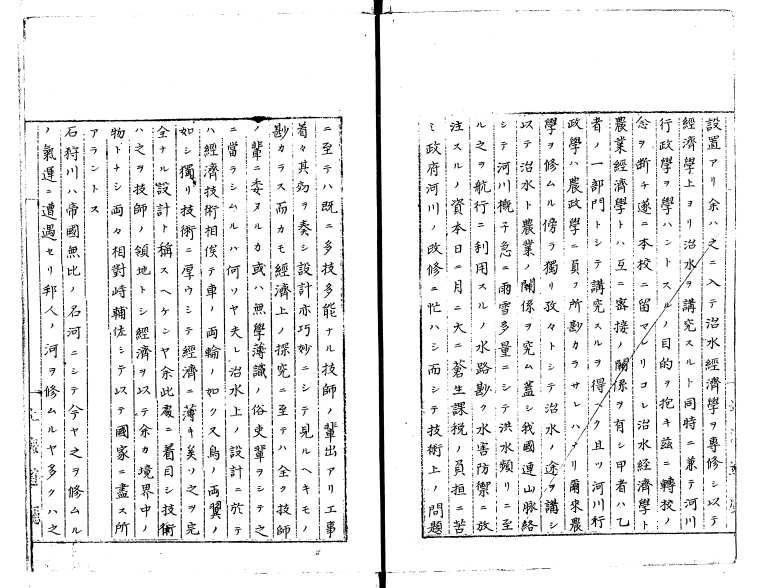 設置アリ余ハ之ニ入テ治水經濟學ヲ專修シ以テ
經濟學上ヨリ治水ヲ講究スルト同時ニ兼テ河川
行政學ヲ學ハントスルノ目的ヲ抱キ茲ニ轉校ノ
念ヲ断チ遂ニ本校ニ留マレリコレ治水經濟學ト
農業經濟學トハ互ニ密接ノ關係ヲ有シ甲者ハ乙
者ノ一部門トシテ講究スルヲ得ベク且ツ河川行
政學ハ農政學ニ負フ所尠カラサレハナリ爾來農
學ヲ修ムル傍ラ獨リ孜々トシテ治水ノ途ヲ講シ
以テ治水ト農業ノ關係ヲ究ム蓋シ我國連山脈絡
シテ河川概子急ニ雨雪多量ニシテ洪水頻リニ至
ル之ヲ航行ニ利用スルノ水路尠ク水害防禦ニ放
注スルノ資本日ニ月ニ大ニ蒼生課税ノ負担ニ苦
ミ政府河川ノ改修ニ忙ハシ而シテ技術上ノ問題
ニ至テハ既ニ多技多能ナル技師ノ輩出アリ工事
着々其効ヲ奏シ設計亦巧妙ニシテ見ルヘキモノ
尠カラス而カモ經濟上ノ探究ニ至テハ全ク技師
ノ輩ニ委ヌルカ或ハ無學薄識ノ俗吏輩ヲシテ之
ニ當ラシムルハ何ソヤ夫レ治水上ノ設計ニ於テ
ハ經濟技術相俟テ車ノ兩輪ノ如クス鳥ノ両翼ノ
如シ獨リ技術ニ厚ウシテ經濟ニ薄キ矣ソ之ヲ完
全ナル設計ト稱スヘケンヤ余此處ニ着目シ技術
ハ之ヲ技師ノ領地トシ經濟ヲ以テ余カ境界中ノ
物トナシ両々相對峙輔佐シテ以テ國家ニ盡ス所
アラントス
石狩川ハ帝國無比ノ名河ニシテ今ヤ之ヲ修ムル
ノ氣運ニ遭遇セリ邦人ノ河ヲ修ムルヤ多クハ之